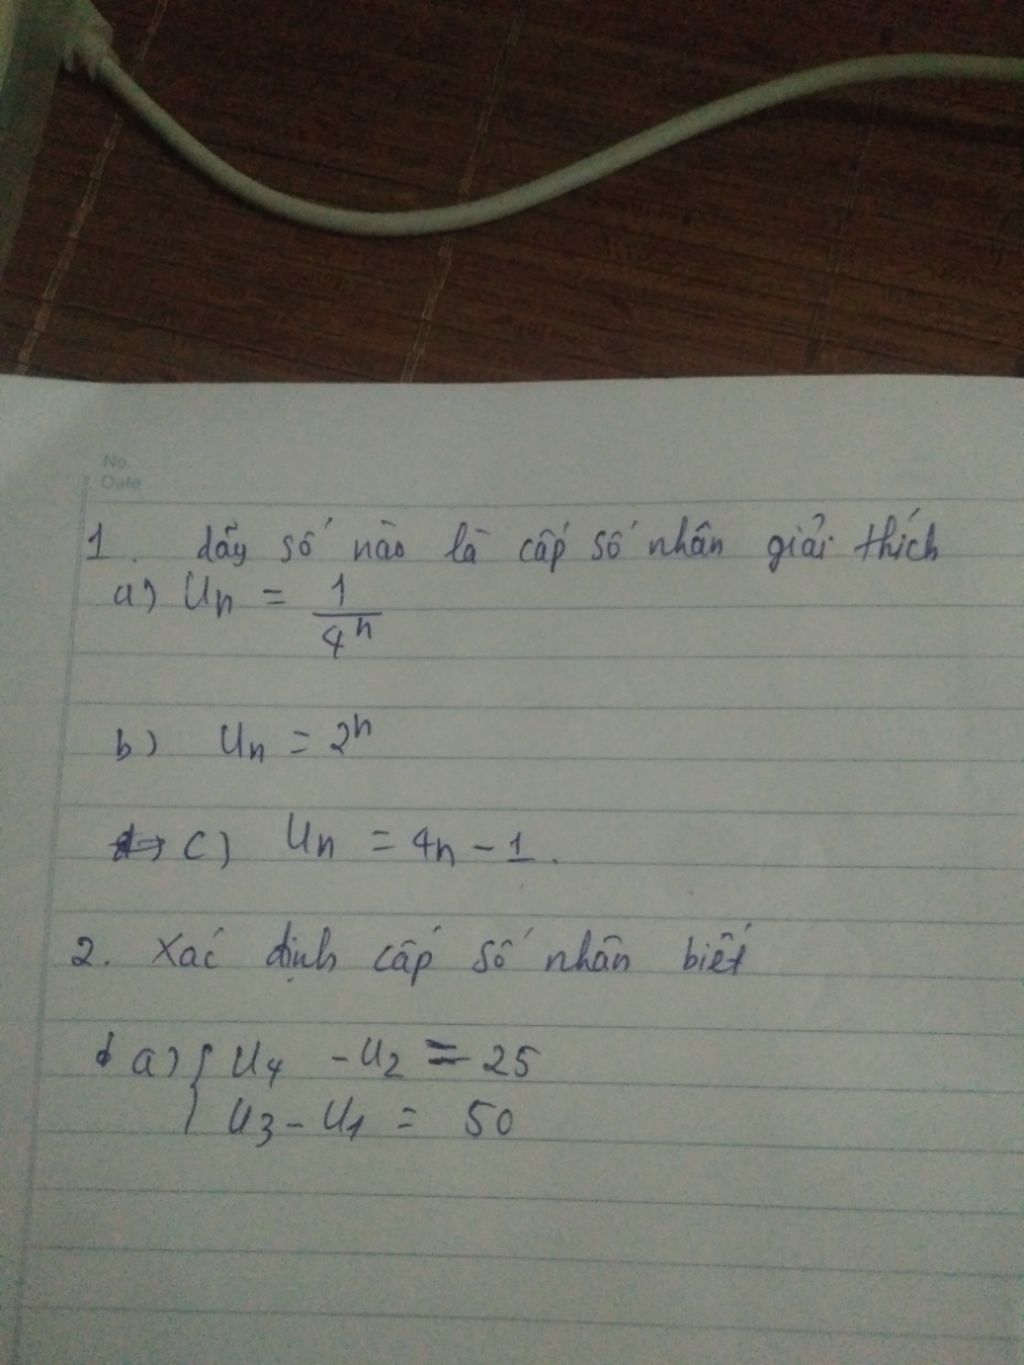 No.
Date
1. dãy số nào là cấp số nhân giải thích
a) Un = 1/4^n
b) Un = 2^n
c) Un = 4n - 1.
2. Xác định cấp số nhân biết
a) { U4 - U2 = 25
U3 - U1 = 50